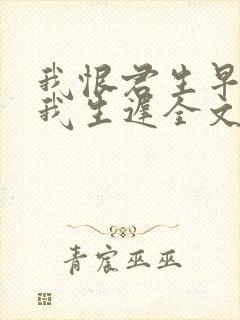 我恨君生早
我生遅全文
青宸巫巫